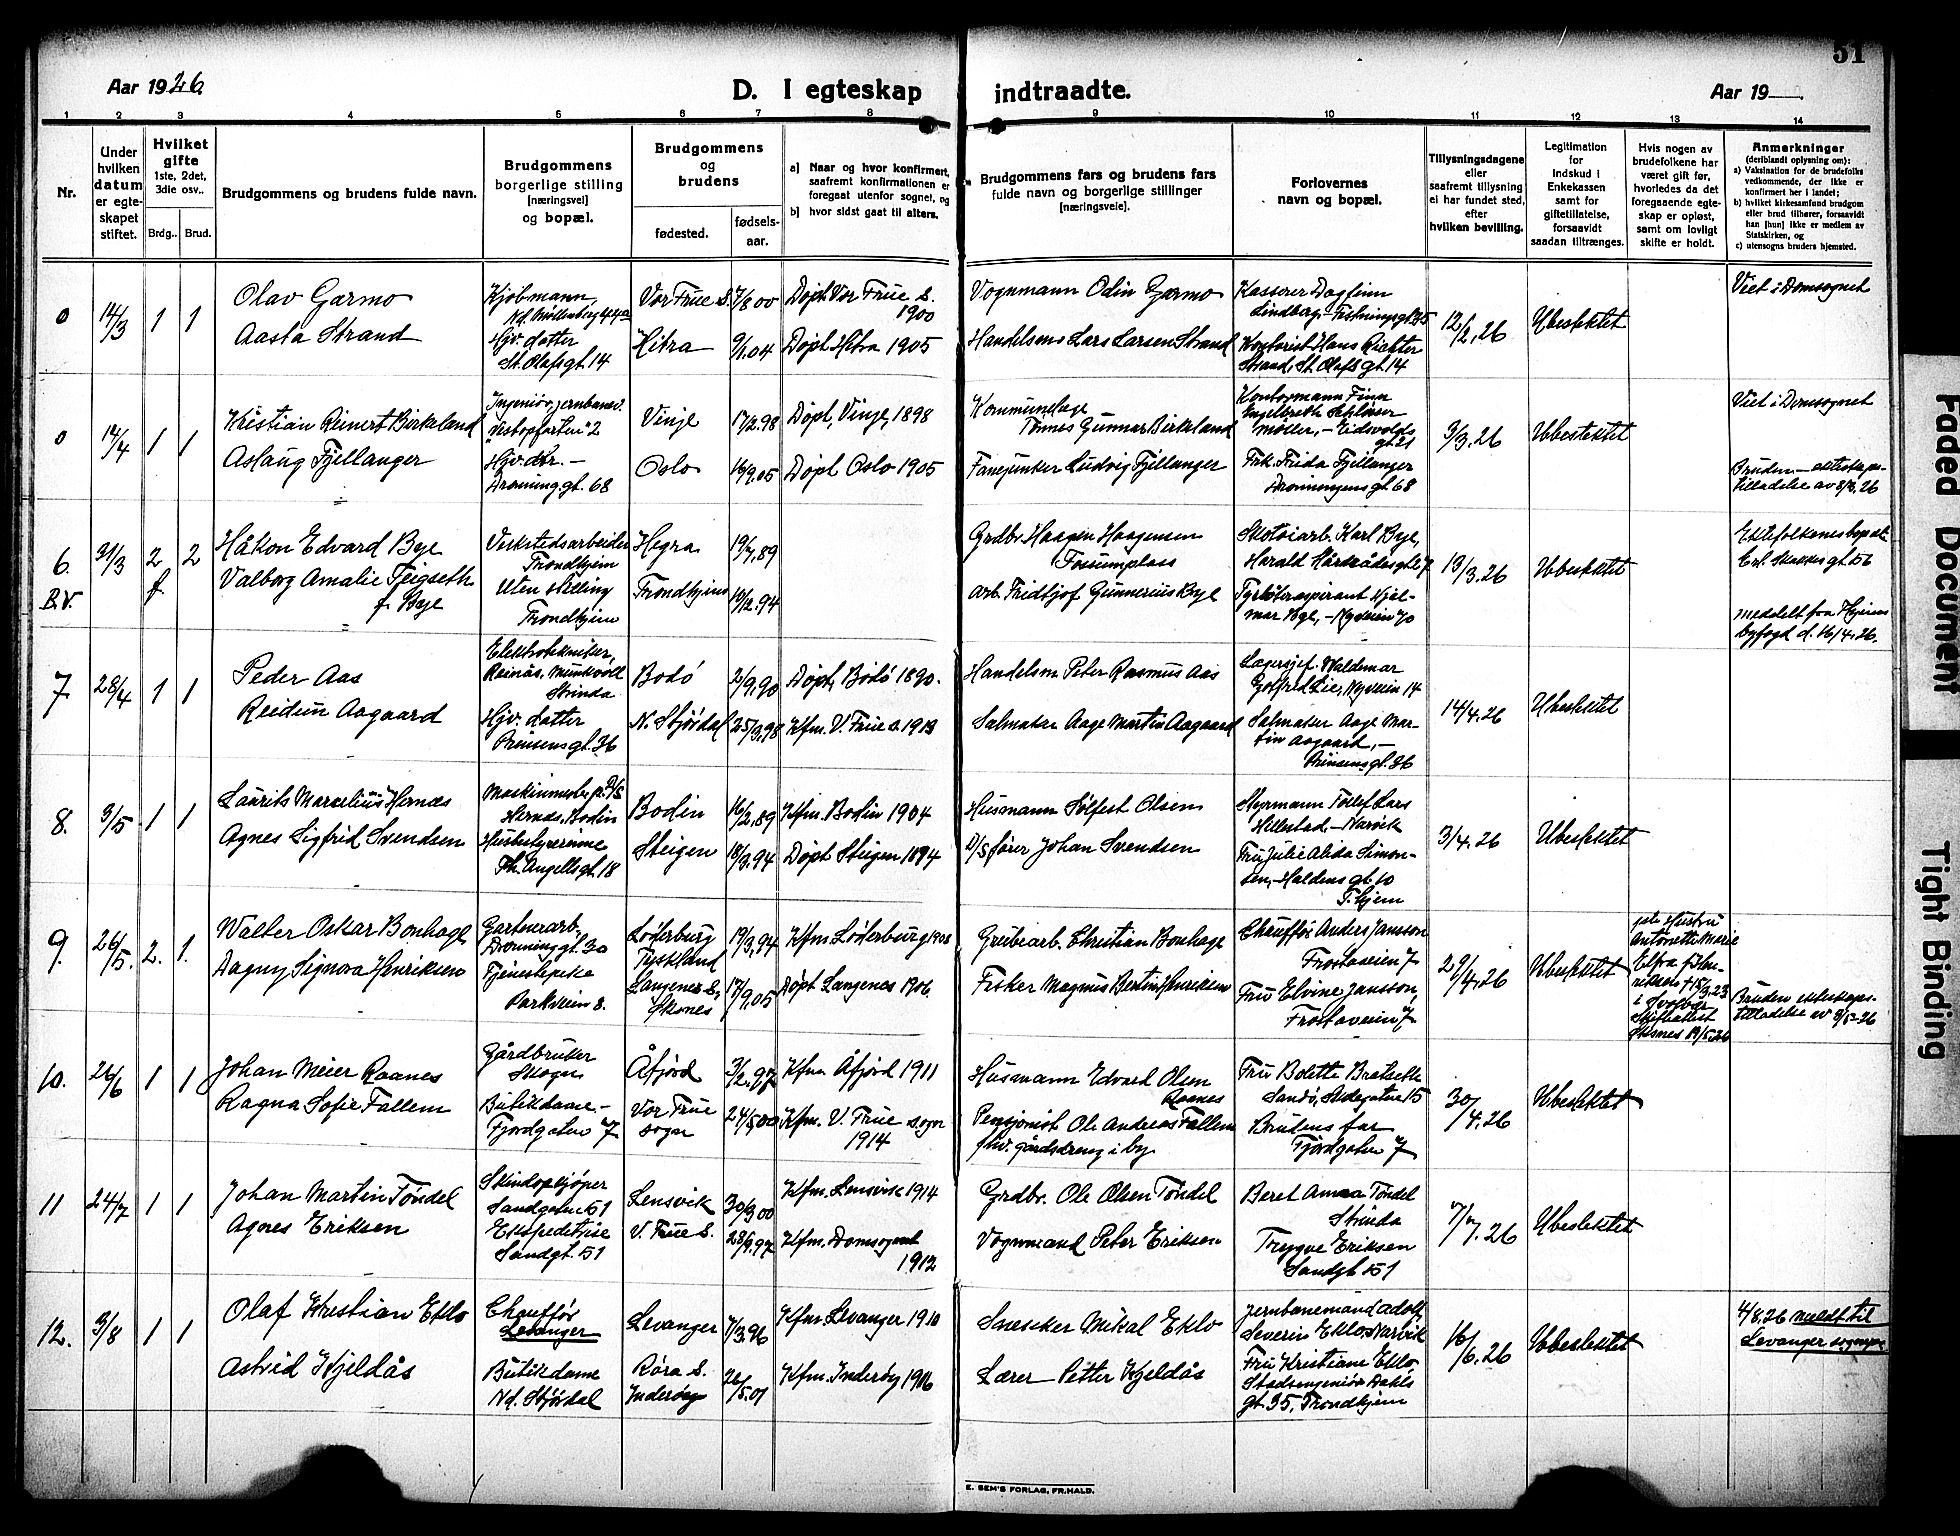 51
Aar 1926.
D. I egteskap indtraadte.
Aar 19
1 2 3 4 5 6 7 8 9 10 11 12 13 14
Nr.
Under
hvilken
datum
er egte-
skapet
stiftet.
Hvilket
gifte
1ste, 2det,
3die osv..
Brdg.. Brud.
Brudgommens og brudens fulde navn.
Brudgommens
borgerlige stilling
(næringsvei)
og bopæl.
Brudgommens
og
brudens
fødested.
fødsels-
aar.
a) Naar og hvor konfirmert,
saafremt konfirmationen er
foregaat utenfor sognet, og
b) hvor sidst gaat til alters.
Brudgommens fars og brudens fars
fulde navn og borgerlige stillinger
(næringsveie).
Forlovernes
navn og bopæl.
Tillysningsdagene
eller
saafremt tillysning
ei har fundet sted,
efter
hvilken bevilling.
Legitimation
for
Indskud i
Enkekassen
samt for
giftetillatelse,
forsaavidt
saadan tiltrænges.
Hvis nogen av
brudefolkene har
været gift før,
hvorledes da det
foregaaende egte-
skap er opløst,
samt om lovligt
skifte er holdt.
Anmerkninger
(deriblandt oplysning om):
a) Vaksination for de brudefolks
vedkommende, der ikke er
konfirmert her i landet;
b) hvilket kirkesamfund brudgom
eller brud tilhører, forsaavidt
han [hun] ikke er medlem av
Statskirken, og
c) utensogns bruders hjemsted.
0 14/3 1 1
Olav Garmo
Aasta Strand
Kjøbmann,
Nd. Møllenberg 44a
Hjv. datter
St. Olafsgt. 14
Vor Frue s. 7/8 00
Hitra 9/1.04
Døpt Vor Frue s.
1900
Døpt Hitra 1905
Vognmann Odin Garmo
Handelsms Lars Larsen Strand
Kasserer Dagfinn
Lindberg
Kontorist Hans Richter
Strand, St. Olafs gt. 14
12/2, 26
Ubeslektet
Viet i Domsognet
0 14/4 1 1
Kristian Reinert Birkeland
Aslaug Fjellanger
Ingeniør, jernbanev.
2
Hjv. dtr. –
Dronning.gt. 68
Vinje 17/2.98
Oslo 16/9.05
Døpt, Vinje, 1898
Døpt Oslo 1905
Kommunelæge
Tønnes Gunnar Birkeland
Fanejunker Ludvig Fjellanger
Kontormann Finn
Engelbreth Schlösser
Møller, – Eidsvolds
gt. 21
Frk. Frida Fjellanger
Dronningens gt. 68
9/3. 26
Ubeslektet
Viet i Domsognet
Bruden – ekteskaps-
tilladelse av 8/3. 26
6. B.V. 31/3 2 f. 2
Håkon Edvard Bye
Valborg Amalie Teigseth
f. Bye
Verkstedsarbeider
Trondhjem
Uten stilling
Trondhjem
Hegra 19/7.89
Trondhjem 10/12.94
Grdbr. Haagen Haagensen
Fossumplass
arb. Fridtjof Gunnerius Bye
Skotøiarb. Karl Bye,
Harald Hårdrådes gt. 7
Hjel-
mar Bye, – Nyveien 70
13/3. 26
Ubeslektet
Ektefolkenes bopæl:
Erl. Skakkes gt. 56
meddelt fra Hjems
byfogd d. 16/4. 26.
7. 28/4 1 1
Peder Aas
Reidun Aagaard
Elektrotekniker,
Reinås, Munkvoll
Strinda
Hjv. datter
Prinsensgt. 36
Bodö 2/9.90
N. Stjørdal 25/3.98
Døpt, Bodö 1890.
Kfm. V. Frue s. 1913
Handelsm Peter Rasmus Aas
Salmaker Aage Martin Aagaard
Lagersjef. Waldemar
Gotfred Lie, Nyveien 14
Salmaker Aage Mar-
tin Aagaard, –
Prinsensgt. 36
14/4. 26
Ubeslektet
8. 3/5 1 1
Laurits Marcelius Hernæs
Agnes Sigfrid Svendsen
Hernæs, Bodin
Husbestyrerinne
Th. Angellsgt. 18
Bodin 16/2.89
Steigen 18/3.94
Kfm. Bodin 1904
Døpt Steigen 1894
Husmann Sølfest Olsen
D/S fører Johan Svendsen
Styrmann Tollef Lars
Hillestad, – Narvik
Fru Julie Alida Simon-
sen, – Haldens gt. 10
T.hjem
3/4. 26
Ubeslektet
9. 26/5. 2. 1.
Walter Oskar Bonhage
Dagny Signora Henriksen
Gartnerarb.
Dronning.gt. 30
Tjenestepike
Parkveien 8.
Løderburg
Tyskland 19/3.94
Langenes s.,
Øksnes 17/9.05
Kfm. Løderburg 1908
Døpt Langenes 1906.
Grubearb. Christian Bonhage
Fisker Magnus Bertin Henriksen
Chauffør Anders Jansson
Frostaveien 7
Fru Elvine Jansson,
Frostaveien 7
29/4. 26
Ubeslektet
Hustru
Antonette Marie
† 15/3.23
i Svolvær
Skifteattest
Øksnes 19/5.26
Bruden ekteskaps-
tilladelse av 8/5-26
10. 26/6 1 1
Johan Meier Raanes
Ragna Sofie Fallem
Gårdbruker
Skogn
Butikdame –
Fjordgaten 7
Åfjord 3/2.97
Vor Frue
sogn 24/5.00
Kfm. Åfjord 1911
Kfm. V. Frue sogn
1914
Husmann Edvard Olsen
Raanes
Pensjonist Ole Andreas Fallem
fhv. gårdsdreng i by
Fru Bolette Bratseth
Sandö, Sidegaten 15
Brudens far
Fjordgaten 7
30/4. 26
Ubeslektet
11 24/7 1 1
Johan Martin Töndel
Agnes Eriksen
Skindopkjøper
Sandgaten 51
Ekspeditrise
Sandgt. 51
Lensvik 30/3 00
V. Frue s. 28/9.97
Kfm. Lensvik 1914
Kfm. Domsognet
1912
Grdbr. Ole Olsen Töndel
Vognmand Peter Eriksen
Beret Anna Töndel
Strinda
Trygve Eriksen
Sandgt. 51
7/7. 26
Ubeslektet
12. 3/8 1 1
Olaf Kristian Eklo
Astrid Kjeldås
Chauffør
Levanger
Butikdame
Nd. Stjørdal
Levanger 7/3 96
Røra s.
Inderøy 26/5.01
Kfm. Levanger 1910
Kfm. Inderøy 1916
Snekker Mikal Eklo
Lærer – Petter Kjeldås
Jernbanemand Adolf
Severin Eklo, Narvik
Fru Kristiane Eklo,
Stadsingeniør Dahls
gt. 35, Trondhjem
16/6. 26
Ubeslektet
4/8.26 meldt til
Levanger sognepr.
E. SEM'S FORLAG, FR.HALD.
Faded Document
Tight Binding